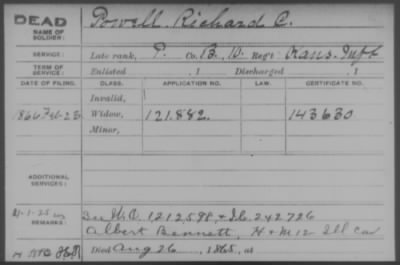 DEAD
NAME OF SOLDIER:
Powell, Richard C.
SERVICE:
Late rank, P. Co. B, 10. Reg't Kans. Inf
TERM OF SERVICE:
Enlisted , 1 Discharged , 1
DATE OF FILING. CLASS. APPLICATION NO. LAW. CERTIFICATE NO.
Invalid,
1866 Feb. 23 Widow, 121.882. 143630
Minor,
ADDITIONAL SERVICES:
REMARKS:
See W.O. 1212598, & Ib. 242726
Albert Bennett, H & M 12 Ill Cav
Died Aug 26, 1865, at